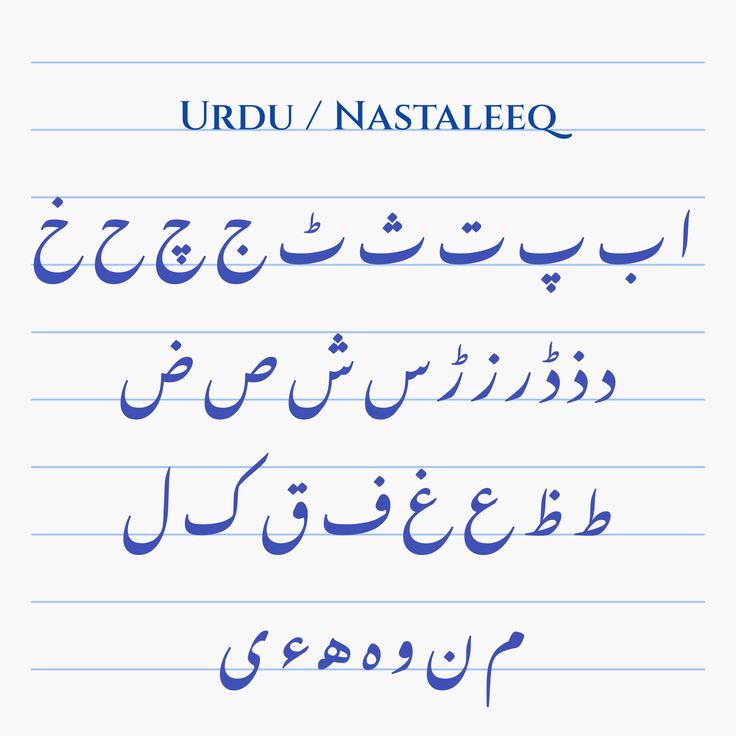 URDU / NASTALEEQ
ا ب پ ت ث ٹ ج چ ح خ
د ذ ڈ ر ز ڑ س ش ص ض
ط ظ ع غ ف ق ک ل
م ن و ہ ھ ء ی